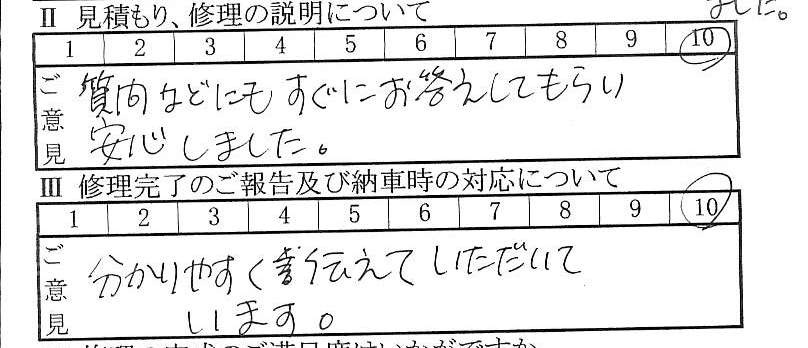 ました。
Ⅱ 見積もり、修理の説明について
1 2 3 4 5 6 7 8 9 10
ご意見
質問などにもすぐにお答えしてもらい
安心しました。
Ⅲ 修理完了のご報告及び納車時の対応について
1 2 3 4 5 6 7 8 9 10
ご意見
分かりやすく伝えていただいて
います。